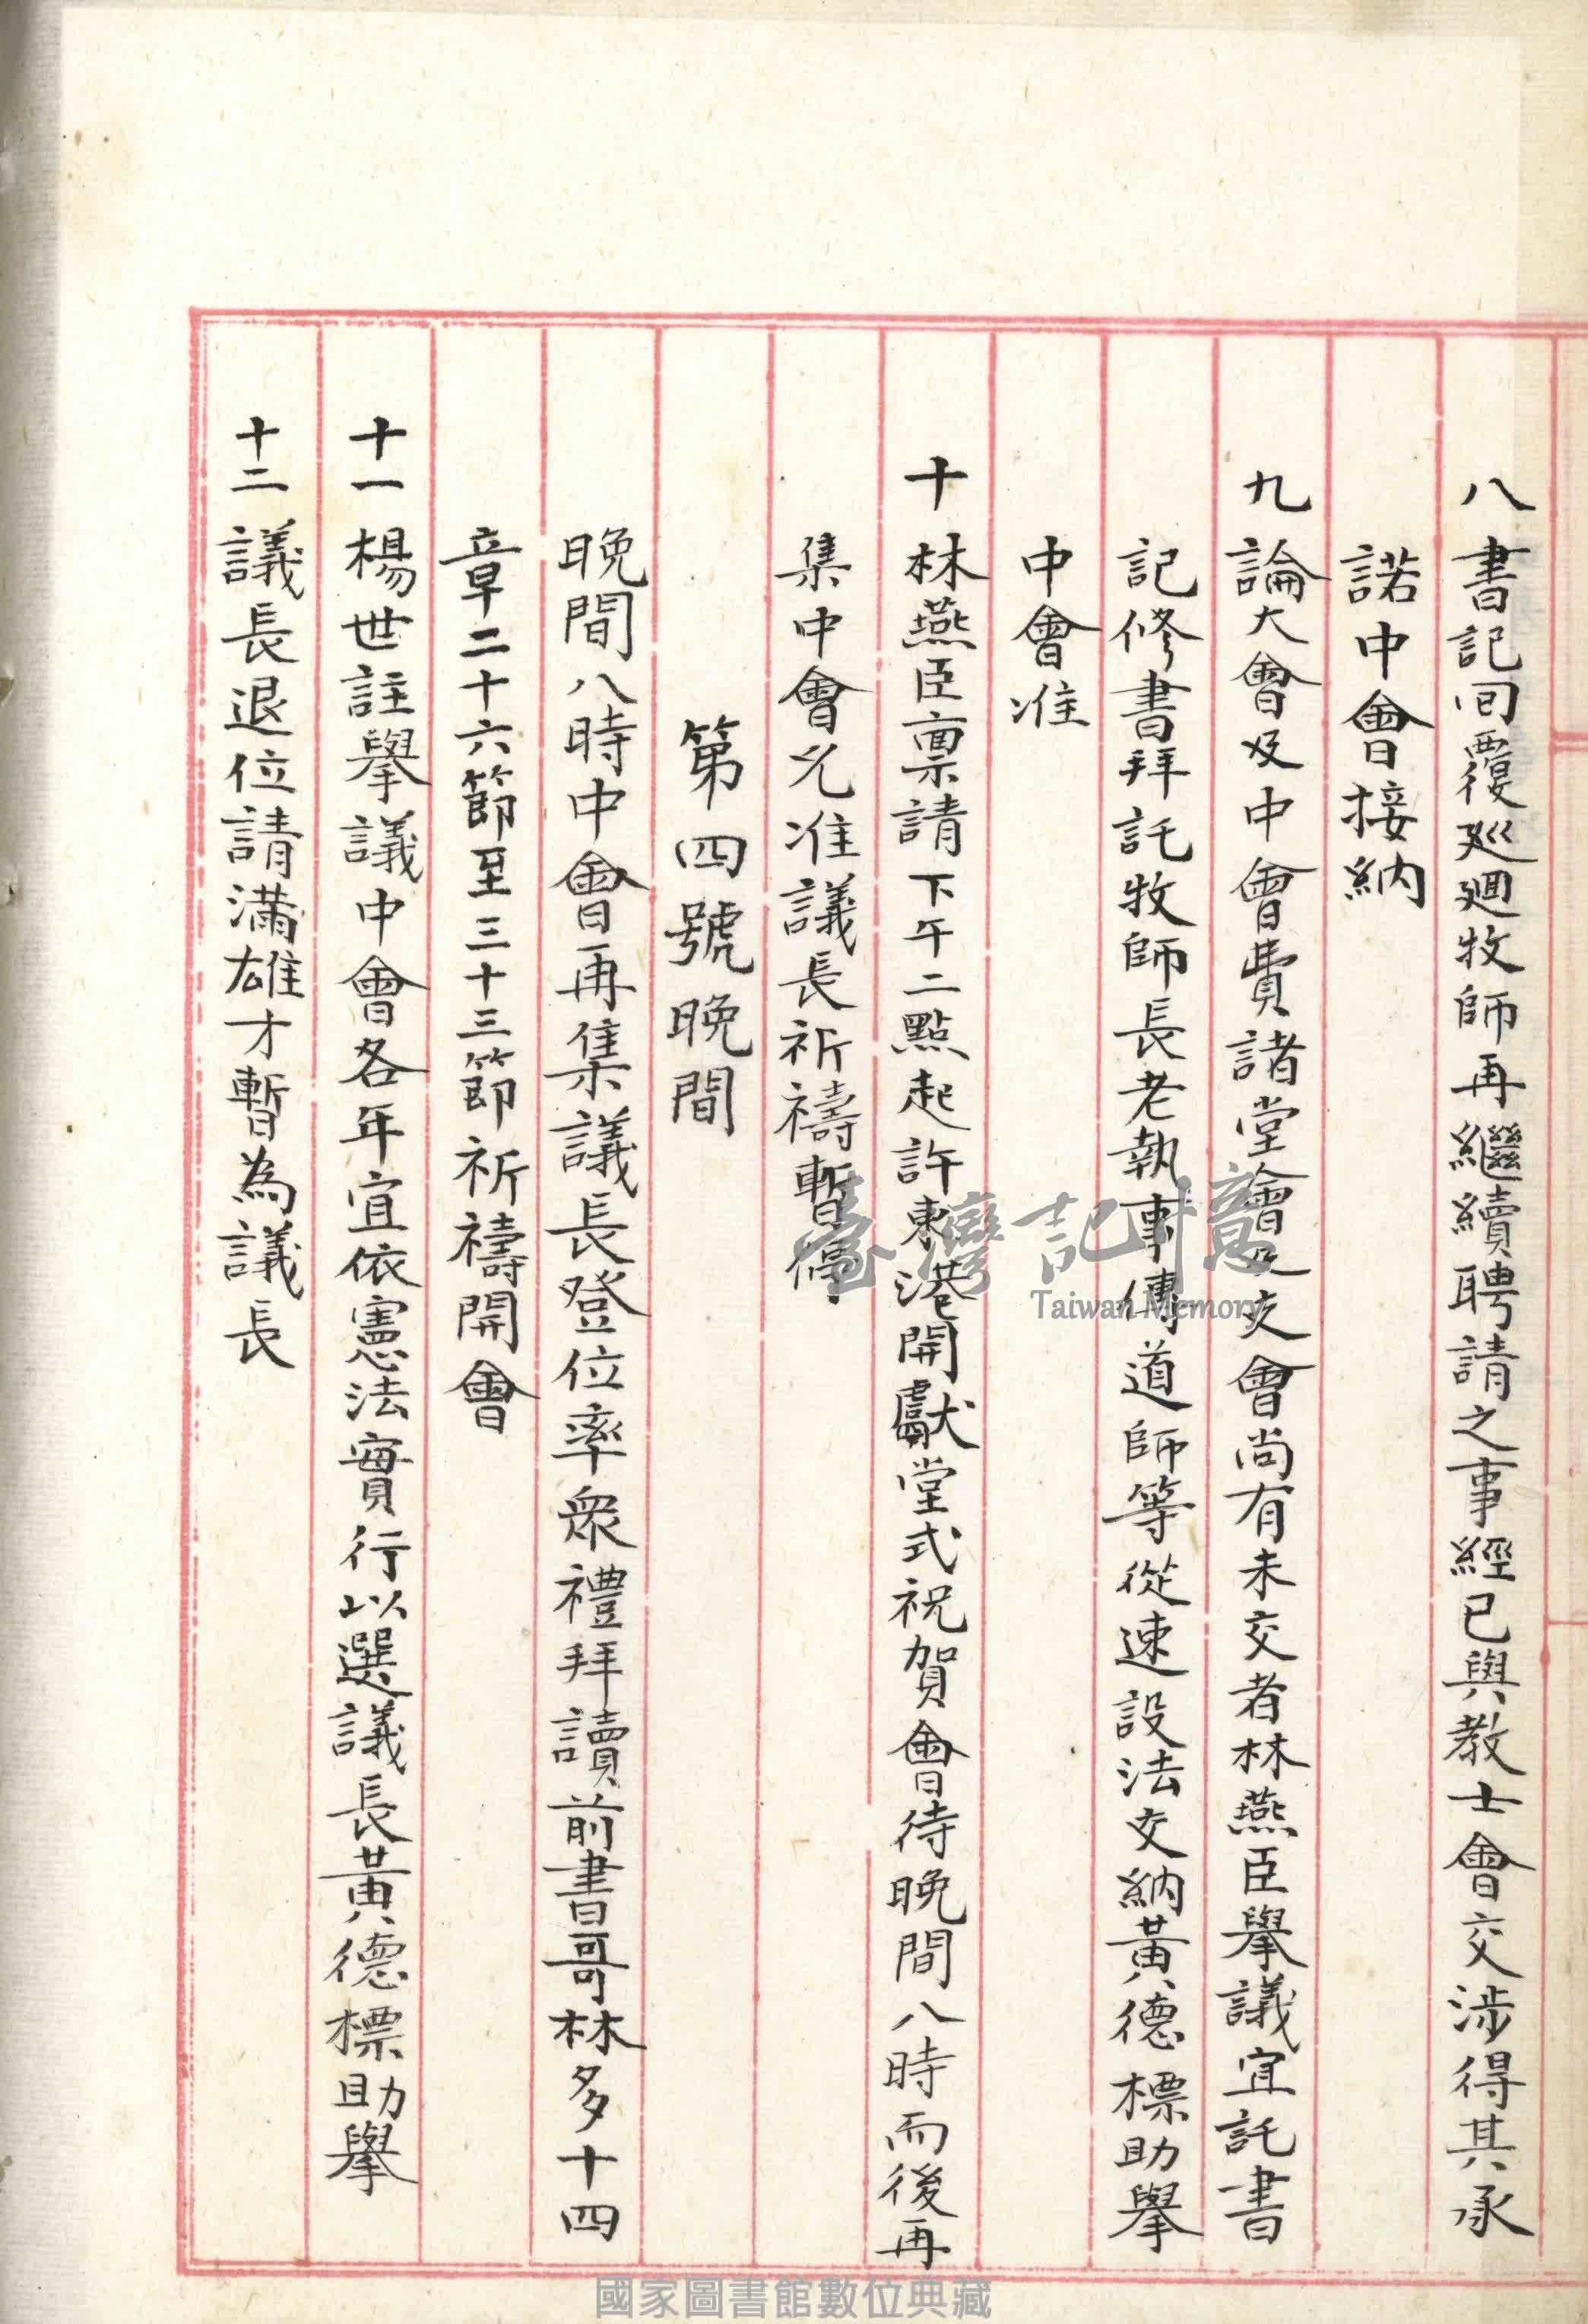 八 書記回覆廵廻牧師再繼續聘請之事經已與教士會交涉得其承
諾中會接納
九 論大會及中會費諸堂會及支會尚有未交者林燕臣舉議宜託書
記修書拜託牧師長老執事傳道師等從速設法交納黃德標助舉
中會准
十 林燕臣禀請下午二點起許東港開獻堂式祝賀會待晚間八時而後再
集中會允准議長祈禱暫停
第四號晚間
晚間八時中會再集議長登位率衆禮拜讀前書哥林多十四
章二十六節至三十三節祈禱開會
十一 楊世註舉議中會各年宜依憲法實行以選議長黃德標助舉
十二 議長退位請滿雄才暫為議長
臺灣記憶
Taiwan Memory
國家圖書館數位典藏